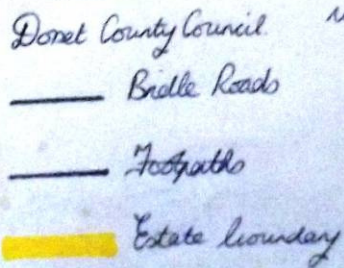 Dorset County Council.
Bridle Roads
Footpaths
Estate boundary